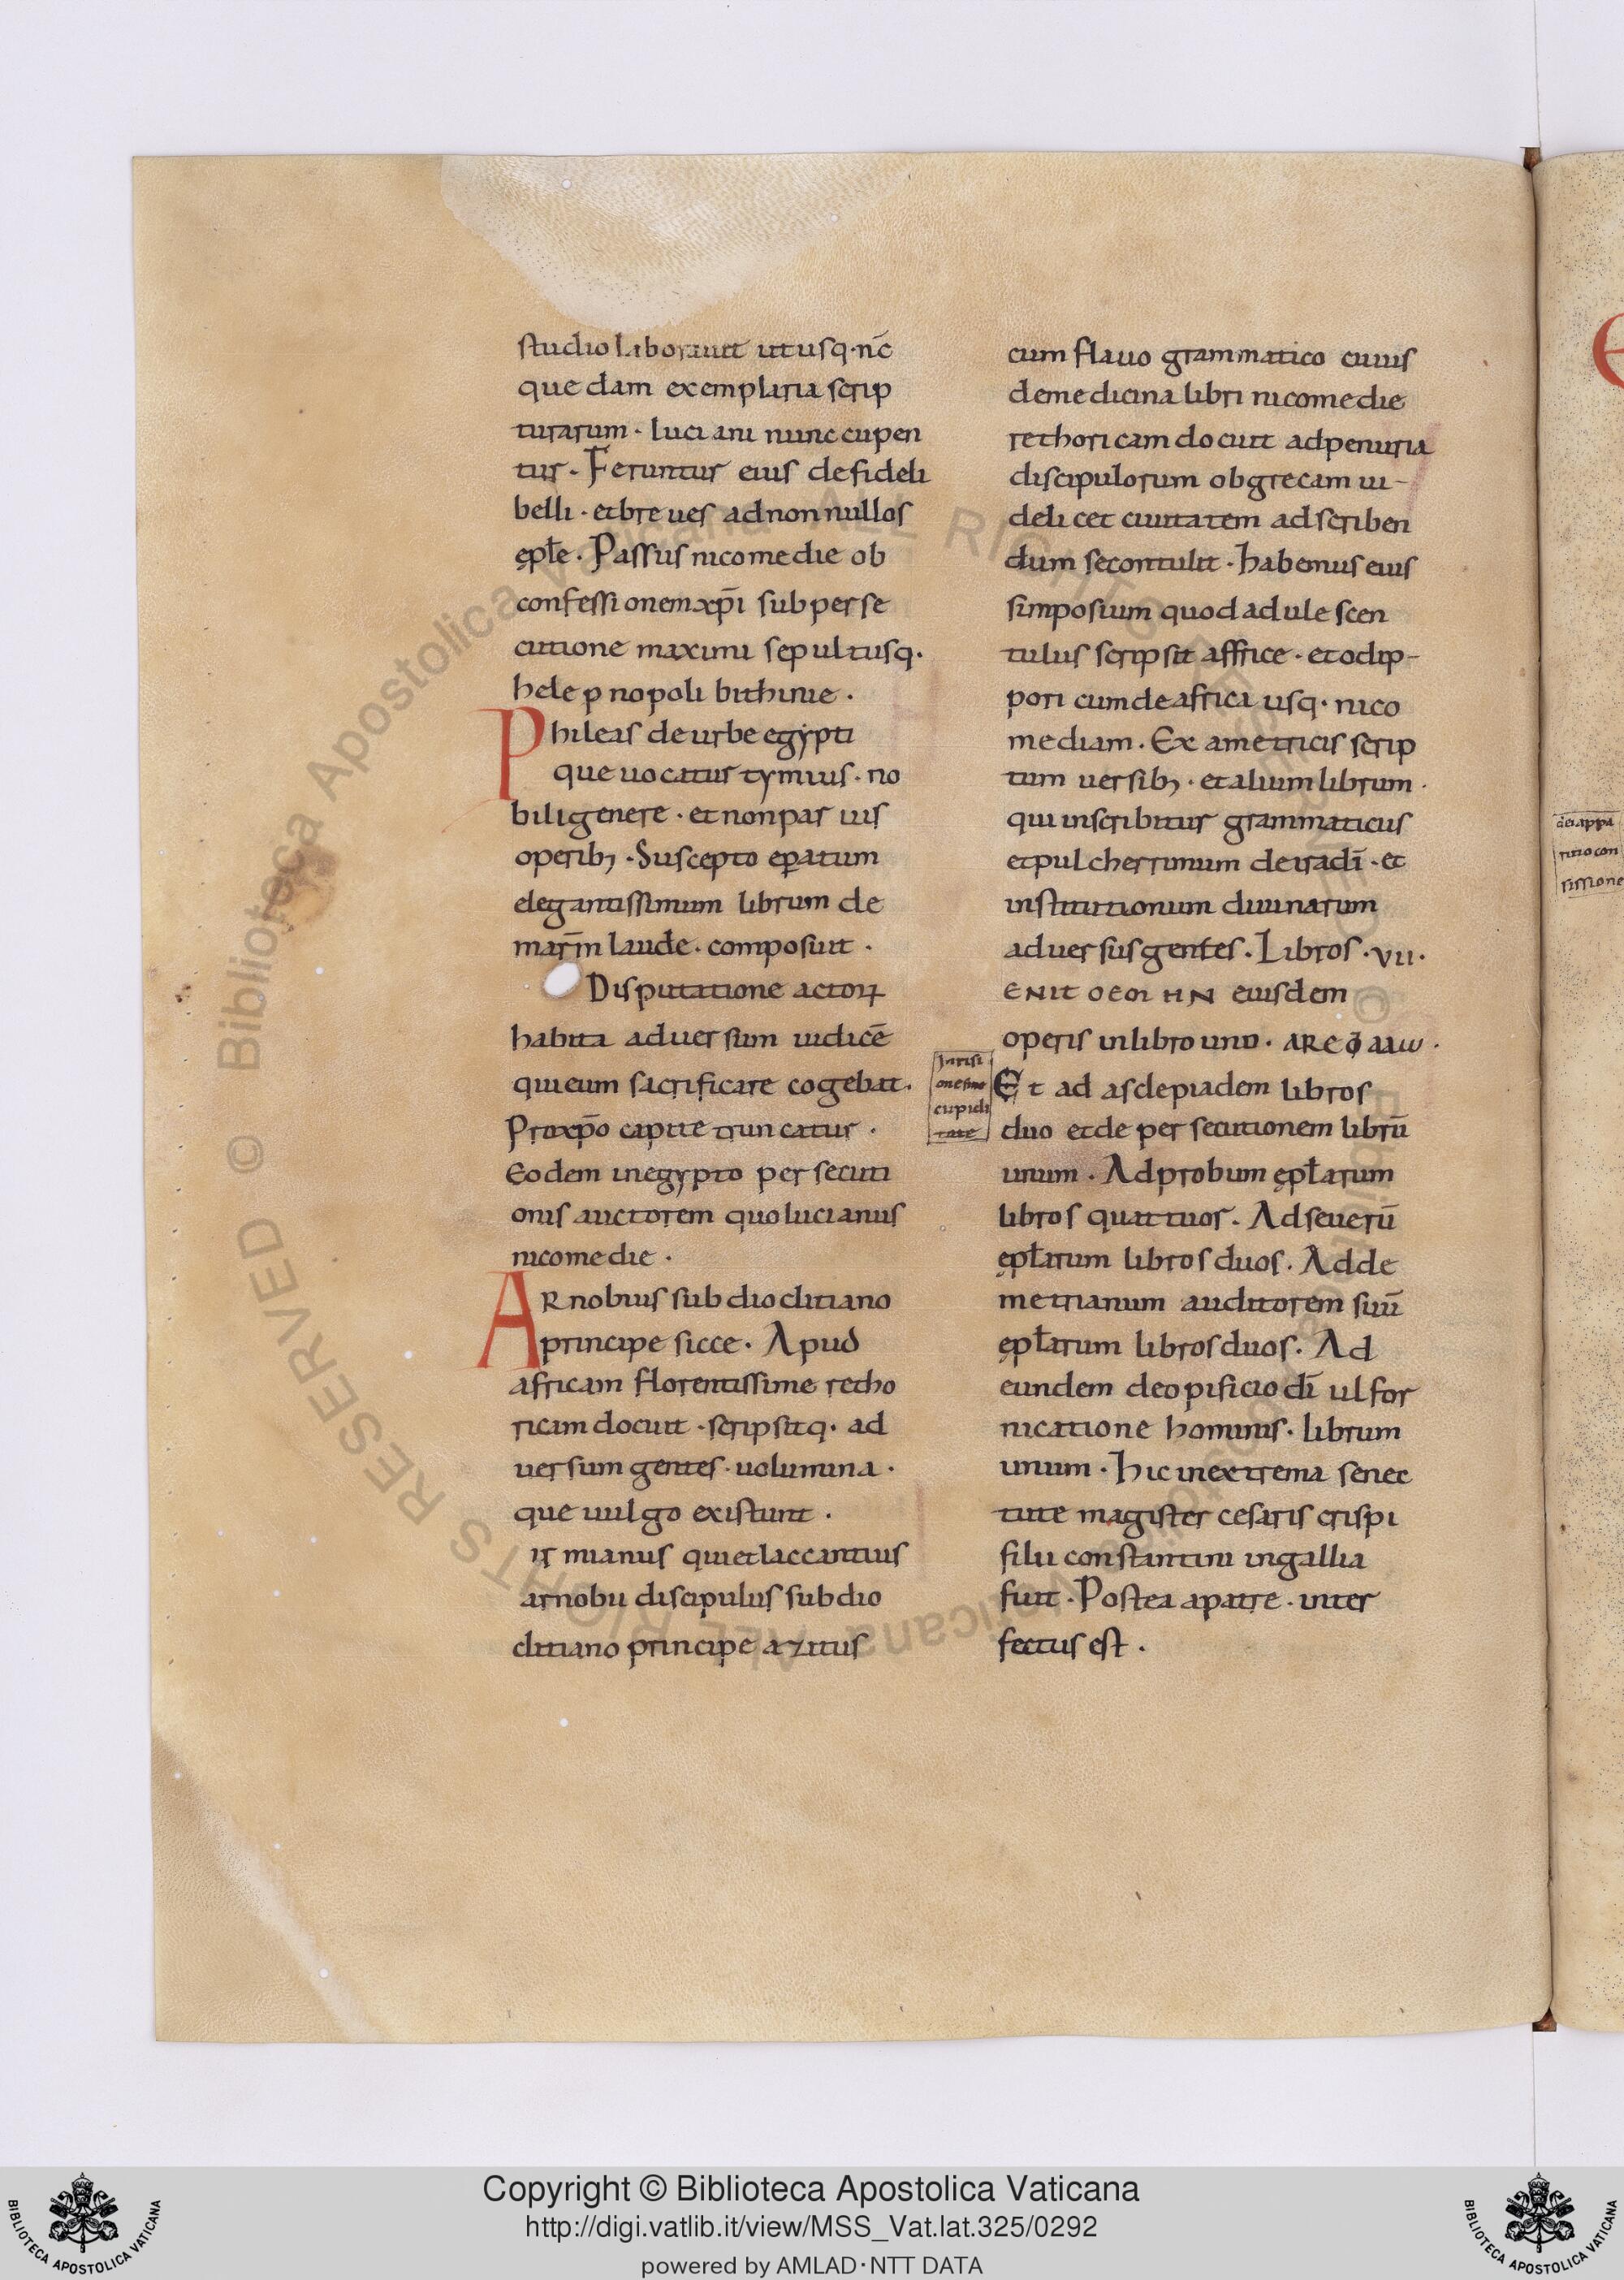 studio laborauit ut usq·nc̄
que dam exemplaria scrip
turarum · luciani nunccupen
tur · Feruntur eius de fideli
belli · et breues ad non nullos
ępłe · Passus nicomedie ob
confessionem xp̄i sub perse
cutione maximi sepultusq·
hele p nopoli bithinie ·
Phileas de urbe egypti
que uocatur tymius · no
bili genere · et non par uis
operibꝫ · Suscepto ep̱atum
elegantissimum librum de
mar̄m laude · composuit ·
Disputatione actoꝝ
habita aduersum iudicē
qui eum sacrificare cogebat ·
Pro xp̄o capite truncatur ·
Eodem in egypto persecuti
onis auctorem quo lucianus
nicomedie ·
Arnobius sub dioclitiano
principe sicce · Apud
africam florentissime retho
ricam docuit · scripsitq· ad
uersum gentes · uolumina ·
que uulgo existunt ·
ir mianus qui et laccantius
arnobii discipulus sub dio
clitiano principe azitus
cum flauo grammatico cuius
de medicina libri nicomedie
rethoricam docuit ad penuria
discipulorum ob grecam ui-
delicet ciuitatem ad scriben
dum se contulit · habemus eius
simposium quod adulescen
tulus scripsit affrice · et odip-
pori cum de africa usq· nico
mediam · Ex ametricis scrip
tum uersibꝫ · et alium librum ·
qui inscribitur grammaticus
et pulcherrimum de iradī · et
institutionum diuinarum
aduersus gentes · Libros · VII ·
eiusdem
operis in libro uno ·
Et ad asclepiadem libros
duo et de persecutionem librū
unum · Ad probum ępłarum
libros quattuor · Ad seuerū
ępłarum libros duos · Ad de
metrianum auditorem suū
ępłarum libros duos · Ad
eundem deopificio dī ul for
nicatione hominis · librum
unum · hic in extrema senec
tute magister cesaris crispi
filii constantini in gallia
fuit · Postea a patre · inter
fectus est ·
cupidi
tate
dei appa
ritio con
fissione
© Biblioteca Apostolica Vaticana ALL RIGHTS RESERVED
Copyright © Biblioteca Apostolica Vaticana
http://digi.vatlib.it/view/MSS_Vat.lat.325/0292
powered by AMLAD·NTT DATA
BIBLIOTECA APOSTOLICA VATICANA
BIBLIOTECA APOSTOLICA VATICANA